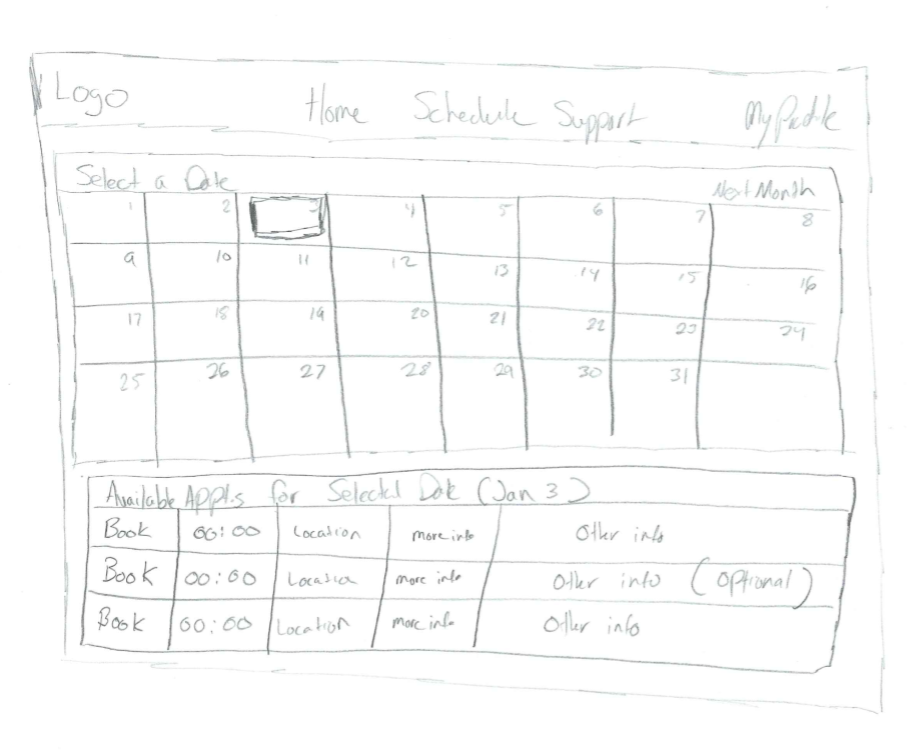 Logo Home Schedule Support My Profile
Select a Date Next Month
1 2 3 4 5 6 7 8
9 10 11 12 13 14 15 16
17 18 19 20 21 22 23 24
25 26 27 28 29 30 31
Available Appts for Selected Date (Jan 3)
Book 00:00 Location more info Other info
Book 00:00 Location more info Other info (optional)
Book 00:00 Location more info Other info